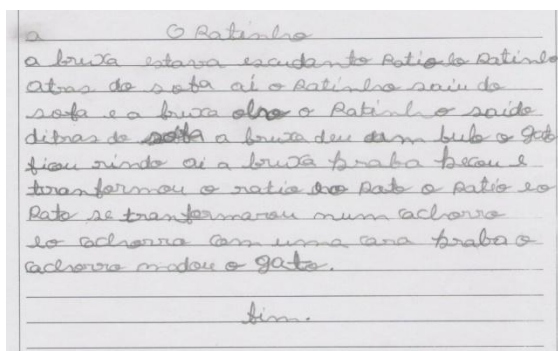 a O Ratinho
a bruxa estava escudanto Ratio lo Ratinho
atras do sofa aí o Ratinho saiu do
sofa e a bruxa olro o Ratinho saido
ditras do sofa a bruxa deu um bulo o gato
ficou rindo ai a bruxa braba becou e
tranformou o ratio eo Rato o Ratio eo
Rato se tranformarou num cachorro
eo cachorro com uma cara braba o
cachorro modou o gato.
fim.